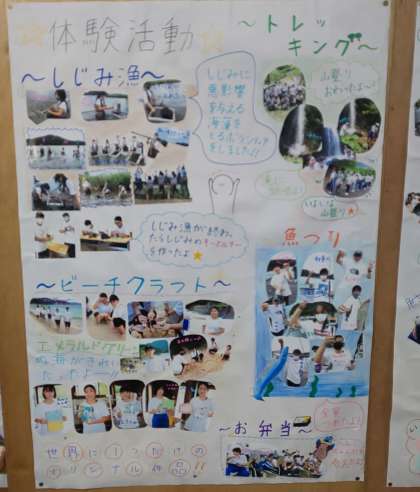 体験活動
〜トレッ
キング〜
〜しじみ漁〜
しじみに
悪影響
を与える
海藻を
とるボランティア
をしました!!
山登り
おわったよ〜!
いざ山登り★
しじみ漁が終わっ
たらしじみのキーホルダー
を作ったよ★
魚つり
〜ビーチクラフト〜
エメラルドグリーン
の海がきれい
だったよ〜!!
世界に1つだけの
オリジナル作品!!
〜お弁当〜